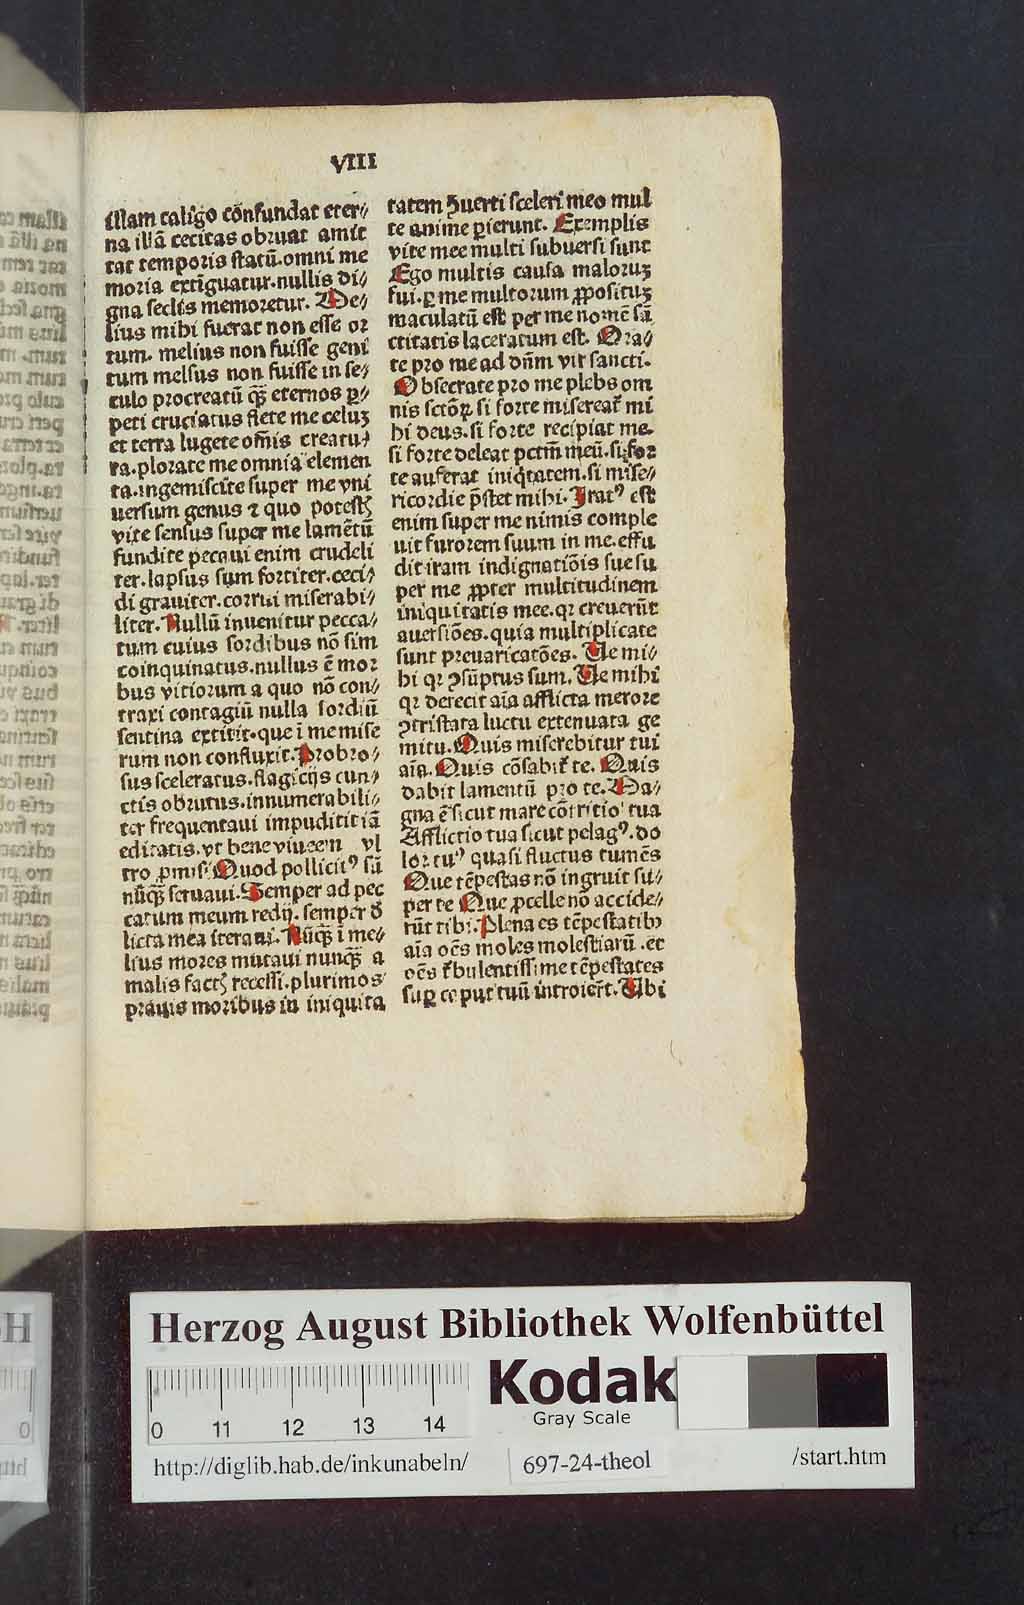 VIII
illam caligo cōnfundat eter⸗
na illā cecitas obruat amit
tat temporis statū.omni me
moria extīguatur.nullis di⸗
gna seclis memoretur. Me⸗
lius mihi fuerat non esse or
tum. melius non fuisse geni
tum melsus non fuisse in se⸗
culo procreatū qȝ̄ eternos ꝑ⸗
peti cruciatus flete me celuȝ
et terra lugete om̄is creatu⸗
ra.plorate me omnia elemen
ta.ingemiscite super me vni
uersum genus ⁊ quo potestꝭ
vite sensus super me lamētū
fundite peccaui enim crudeli
ter.lapsus sum fortiter.ceci⸗
di grauiter.corrui miserabi⸗
liter. Nullū inuenitur pecca⸗
tum cuius sordibus nō sim
coinquinatus.nullus ē mor
bus vitiorum a quo nō con⸗
traxi contagiū nulla sordiū
sentina extitit.que ī me mise
rum non confluxit.Probro⸗
sus sceleratus.flagicijs cun⸗
ctis obrutus.innumerabili⸗
ter frequentaui impuditit iā
editatis.vt bene viuerem vl
tro ꝓmisi.Quod pollicitꝰ sū
nūqȝ̄ seruaui.Semper ad pec
catum meum redij. semper đ
licta mea iteraui.Nūqȝ̄ ī me⸗
lius mores mutaui nunqȝ̄ a
malis factꝭ recessi.plurimos
prauis moribus in iniquita
tatem ꝯuerti sceleri meo mul
te anime ꝑierunt. Exemplis
vite mee multi subuersi sunt
Ego multis causa maloruȝ
fui.ꝑ me multorum ꝓposituȝ
maculatū est per me nomē sā
ctitatis laceratum est. Ora⸗
te pro me ad dn̄m viri sancti.
Obsecrate pro me plebs om
nis sctōꝝ si forte misereat̄ mi
hi deus.si forte recipiat me.
si forte deleat pctm̄ meū.si for
te auferat iniq̇tatem.si mise⸗
ricordie p̄stet mihi.Iratꝰ est
enim super me nimis comple
uit furorem suum in me.effu
dit iram indignatiōis sue su
per me ꝓpter multitudinem
iniquitatis mee.qꝛ creuerūt
auersiōes.quia multiplicate
sunt preuaricatōes. Ue mi⸗
hi qꝛ ꝯsūptus sum. Ue mihi
qꝛ derecit aīa afflicta merore
ꝯtristata luctu extenuata ge
mitu.Quis miserebitur tui
aīa.Quis cōsabit̄ te. Quis
dabit lamentū pro te.Ma⸗
gna ē sicut mare cōtritio tua
Afflictio tua sicut pelagꝰ.do
lor tuꝰ quasi fluctus tumēs
Que tēpestas nō ingruit su⸗
per te Que ꝓcelle nō accide⸗
rūt tibi.Plena es tēpestatibꝰ
aīa oēs moles molestiarū .et
oēs t̄bulentissime tēpestates
suꝑ ceput tuū introiert̄.Ubi
Herzog August Bibliothek Wolfenbüttel
Kodak
Gray Scale
0 11 12 13 14
http://diglib.hab.de/inkunabeln/ 697-24-theol /start.htm